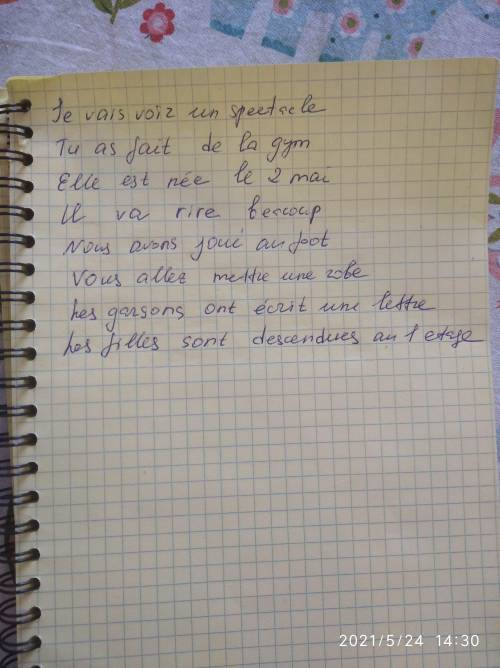 Je vais voir un spectacle
Tu as fait de la gym
Elle est née le 2 mai
Il va rire bescoup
Nous avons joué au foot
Vous allez mettre une robe
Les garsons ont écrit une lettre
Les filles sont descendues au 1 etage
2021/5/24 14:30